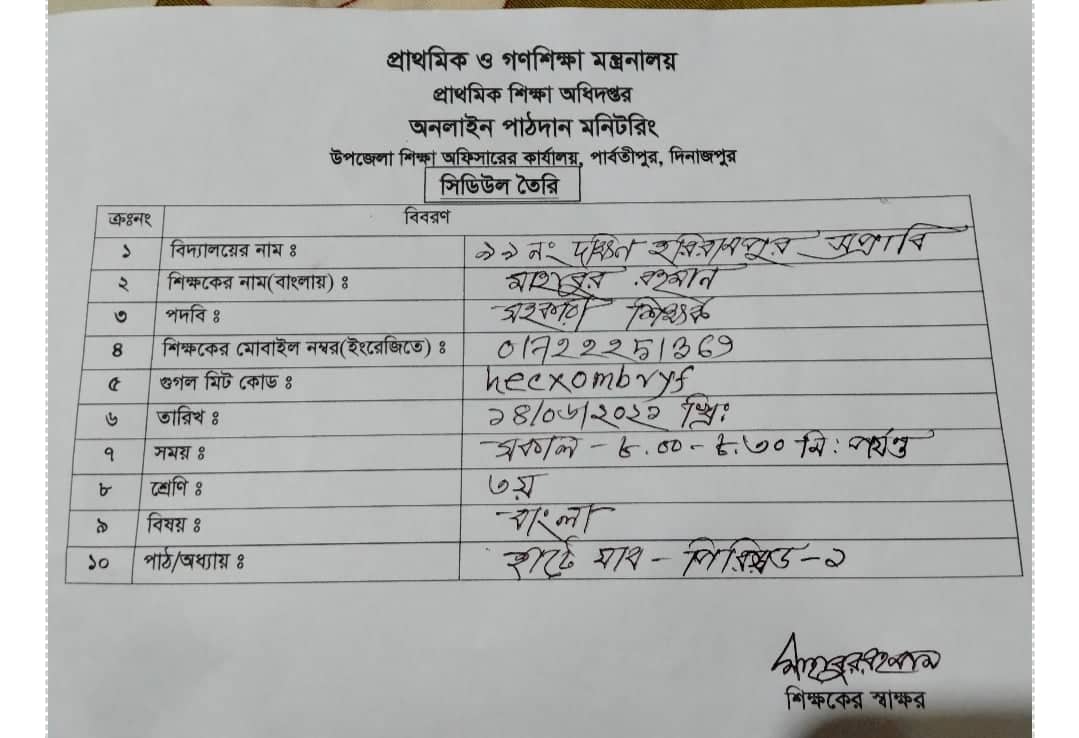 প্রাথমিক ও গণশিক্ষা মন্ত্রনালয়
প্রাথমিক শিক্ষা অধিদপ্তর
অনলাইন পাঠদান মনিটরিং
উপজেলা শিক্ষা অফিসারের কার্যালয়, পার্বতীপুর, দিনাজপুর
সিডিউল তৈরি
ক্রঃনং বিবরণ
১ বিদ্যালয়ের নাম ঃ ১১নং দক্ষিন হরিরামপুর সপ্রাবি
২ শিক্ষকের নাম(বাংলায়) ঃ মাহাবুর রহমান
৩ পদবি ঃ সহকারী শিক্ষক
৪ শিক্ষকের মোবাইল নম্বর(ইংরেজিতে) ঃ 01722251369
৫ গুগল মিট কোড ঃ heexombryf
৬ তারিখ ঃ ১৪/০৬/২০২১ খ্রিঃ
৭ সময় ঃ সকাল - ৮.০০ - ৮.৩০ মি: পর্যন্ত
৮ শ্রেণি ঃ ৩য়
৯ বিষয় ঃ বাংলা
১০ পাঠ/অধ্যায় ঃ হাটে যাব - পিরিয়ড-১
মাহাবুর রহমান
শিক্ষকের স্বাক্ষর